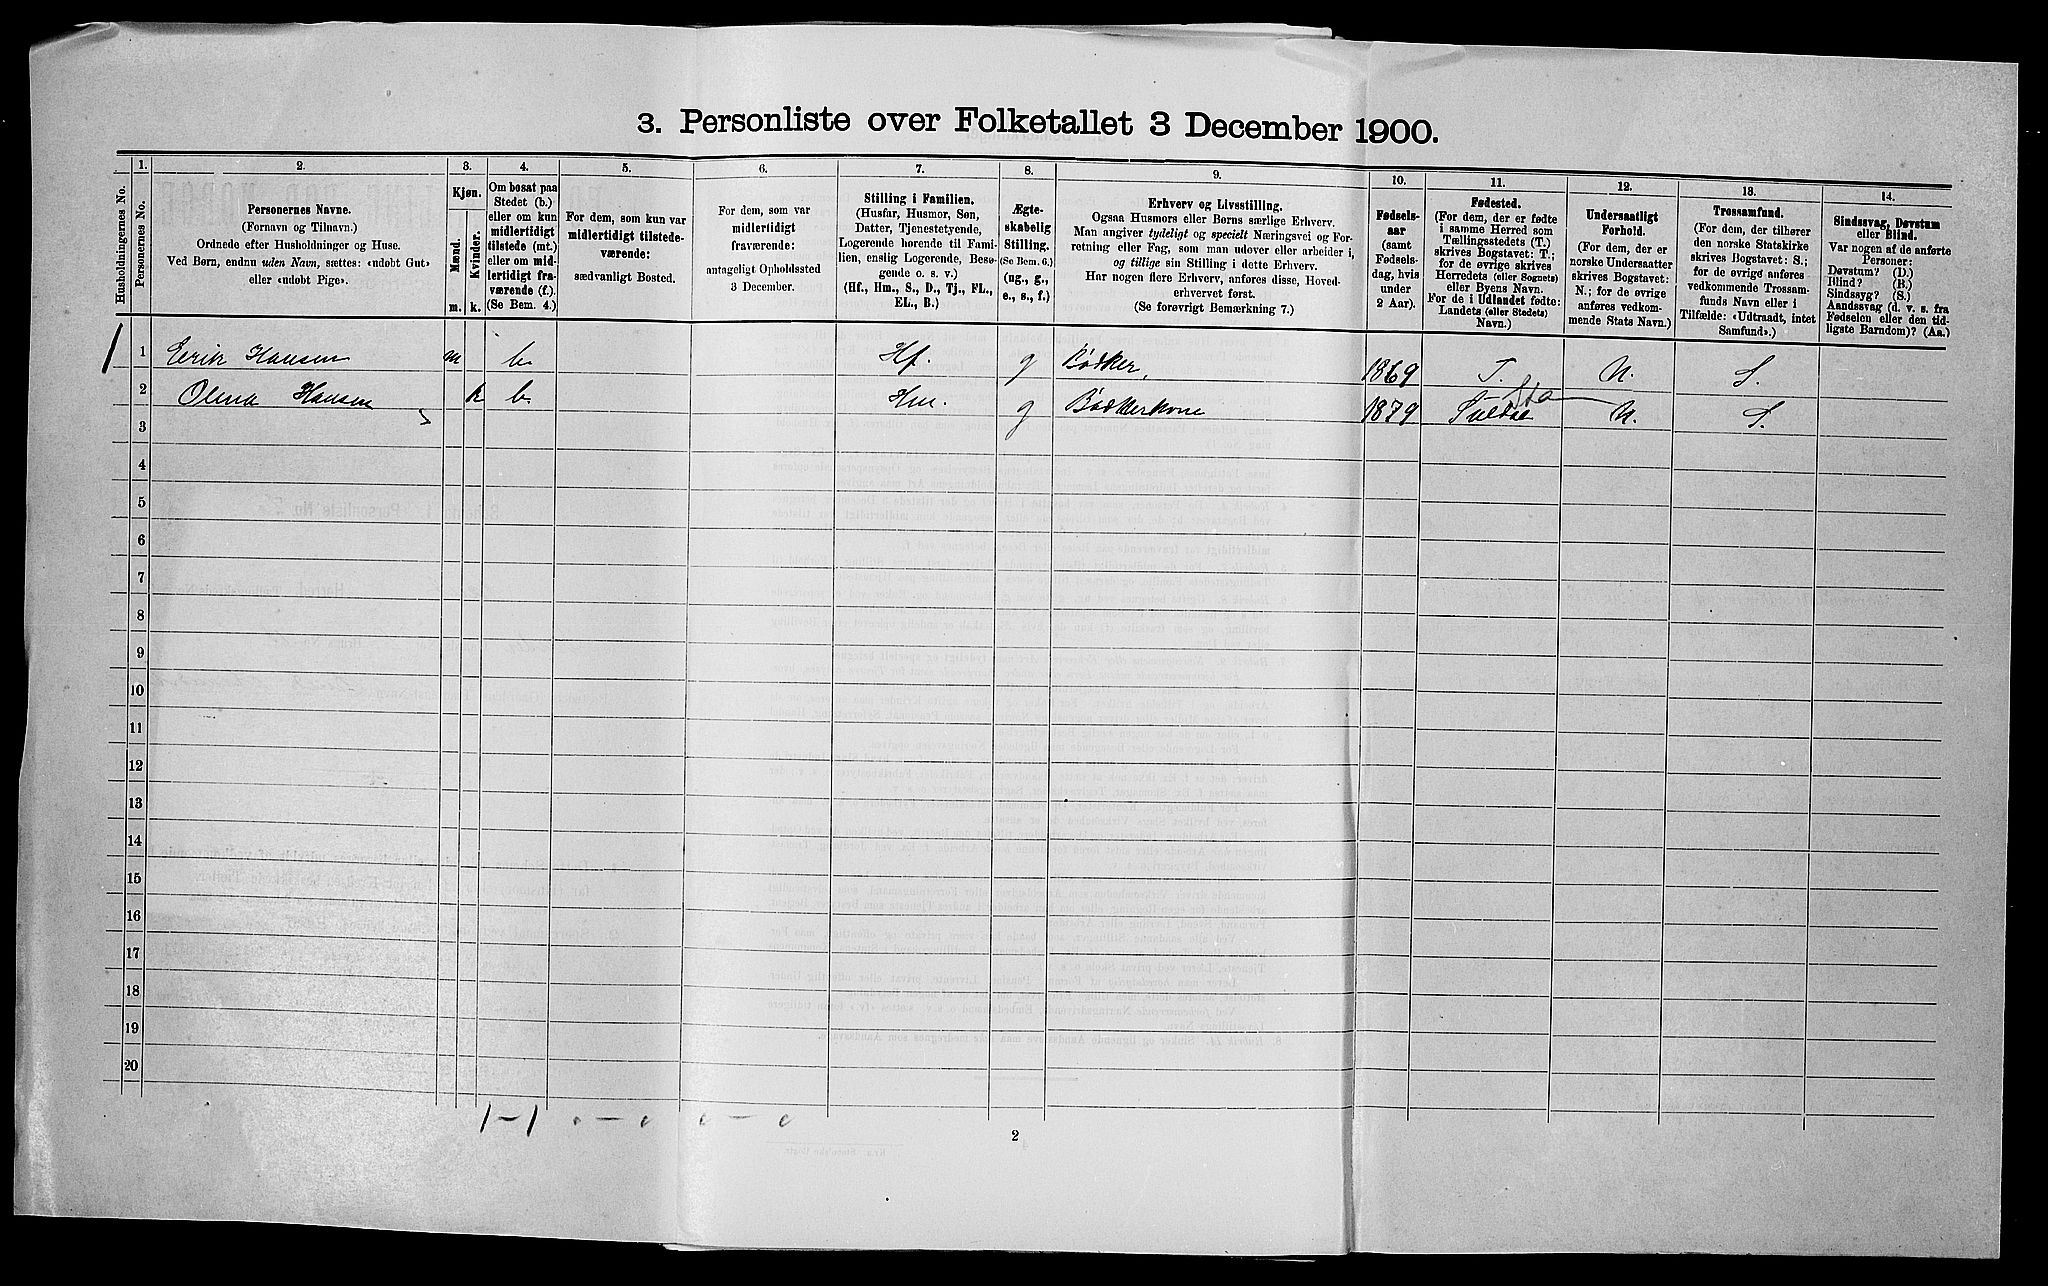 3. Personliste over Folketallet 3 December 1900.
1. 2. 3. 4. 5. 6. 7. 8. 9. 10. 11. 12. 13. 14.
Husholdningernes No.
Personernes No.
Personernes Navne.
(Fornavn og Tilnavn.)
Ordnede efter Husholdninger og Huse.
Ved Børn, endnu uden Navn, sættes: «udøbt Gut»
eller «udøbt Pige».
Kjøn.
Mænd.
Kvinder.
m. k.
Om bosat paa
Stedet (b.)
eller om kun
midlertidigt
tilstede (mt.)
eller om mid-
lertidigt fra-
værende (f.).
(Se Bem. 4.)
For dem, som kun var
midlertidigt tilstede-
værende:
sædvanligt Bosted.
For dem, som var
midlertidigt
fraværende:
antageligt Opholdssted
3 December.
Stilling i Familien.
(Husfar, Husmor, Søn,
Datter, Tjenestetyende,
Logerende hørende til Fami-
lien, enslig Logerende, Besø-
gende o. s. v.)
(Hf., Hm., S., D., Tj., FL.,
EL., B.)
Ægte-
skabelig
Stilling.
(Se Bem. 6.)
(ug., g.,
e., s., f.)
Erhverv og Livsstilling.
Ogsaa Husmors eller Børns særlige Erhverv.
Man angiver tydeligt og specielt Næringsvei og For-
retning eller Fag, som man udøver eller arbeider i,
og tillige sin Stilling i dette Erhverv.
Har nogen flere Erhverv, anføres disse, Hoved-
erhvervet først.
(Se forøvrigt Bemærkning 7.)
Fødsels-
aar
(samt
Fødsels-
dag, hvis
under
2 Aar).
Fødested.
(For dem, der er fødte
i samme Herred som
Tællingsstedets (T.)
skrives Bogstavet: T.;
for de øvrige skrives
Herredets (eller Sognets)
eller Byens Navn.
For de i Udlandet fødte:
Landets (eller Stedets)
Navn.)
Undersaatligt
Forhold.
(For dem, der er
norske Undersaatter
skrives Bogstavet:
N.; for de øvrige
anføres vedkom-
mende Stats Navn.)
Trossamfund.
(For dem, der tilhører
den norske Statskirke
skrives Bogstavet: S.;
for de øvrige anføres
vedkommende Trossam-
funds Navn eller i
Tilfælde: «Udtraadt, intet
Samfund».)
Sindssvag, Døvstum
eller Blind.
Var nogen af de anførte
Personer:
Døvstum? (D.)
Blind? (B.)
Sindssyg? (S.)
Aandssvag (d. v. s. fra
Fødselen eller den tid-
ligste Barndom)? (Aa.)
1 1 Erik Hansen m b. Hf. g Bødker, 1869 T. N. S.
2 Olena Hansen k b. Hm. g Bødkerkone 1879 Suldal Sta N. S.
3
4
5
6
7
8
9
10
11
12
13
14
15
16
17
18
19
20
1-1 0-0 0-0
2